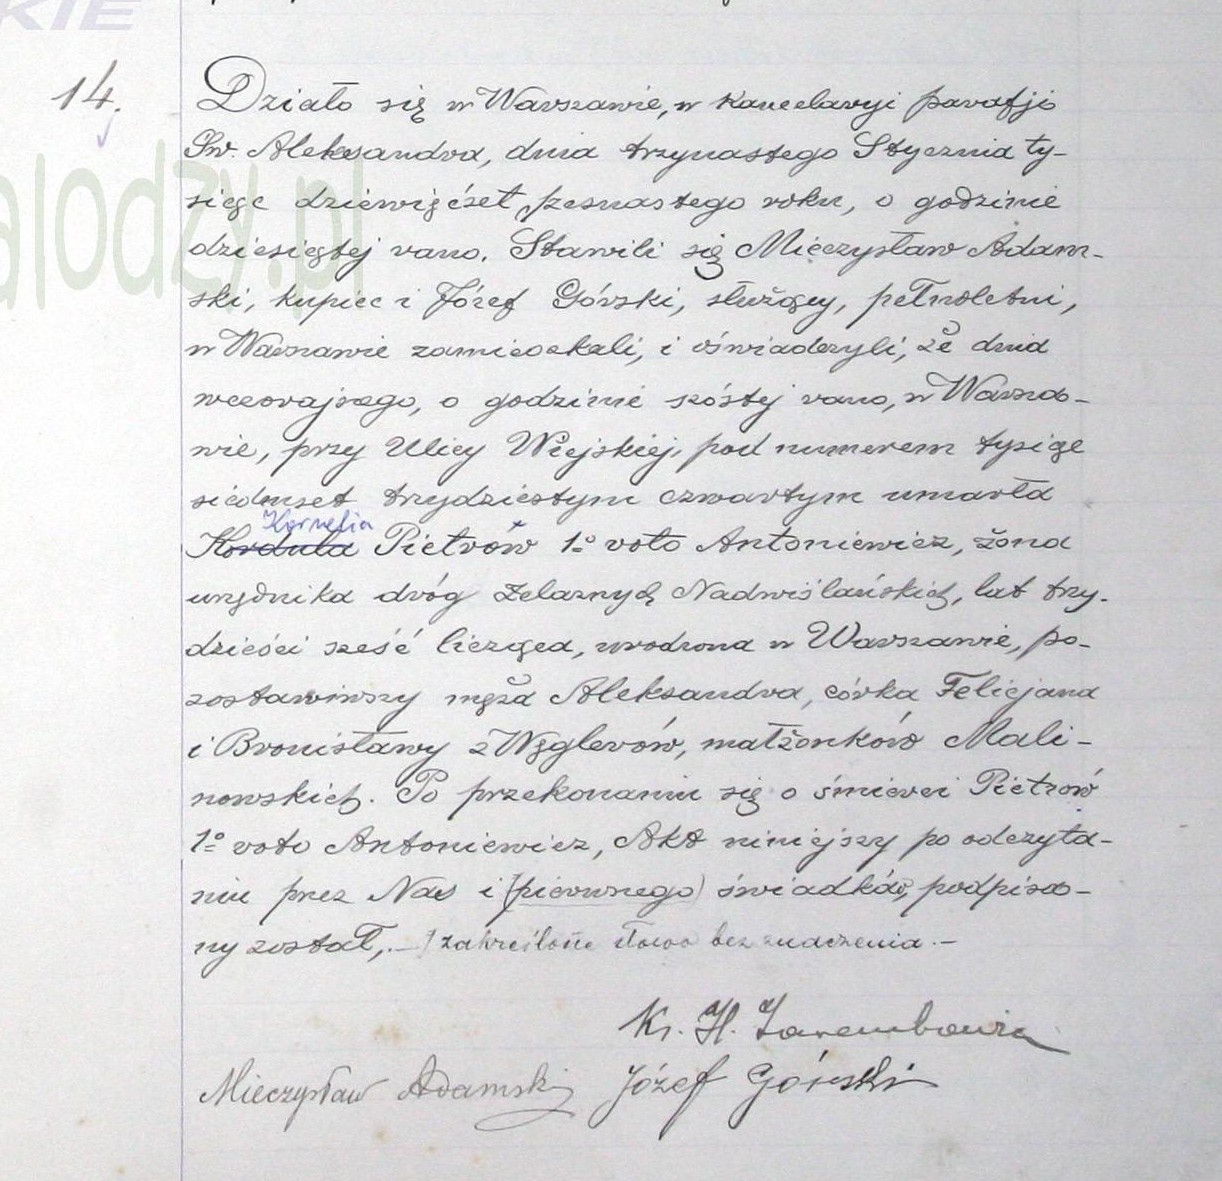 KIE
14.
Działo się w Warszawie, w kancelaryi parafji
Św. Aleksandra, dnia trzynastego Stycznia ty-
siąc dziewięćset szesnastego roku, o godzinie
dziesiątej rano. Stawili się Mieczysław Adam-
ski, kupiec i Józef Górski, służący, pełnoletni,
w Warszawie zamieszkali, i oświadczyli, że dnia
wczorajszego, o godzinie szóstej rano, w Warsza-
wie, przy Ulicy Wiejskiej, pod numerem tysiąc
siedmset trzydziestym czwartym umarła
Kornelia
Kordula Pietrow 1º voto Antoniewicz, żona
urzędnika dróg żelaznych Nadwiślańskich, lat trzy-
dzieści sześć licząca, urodzona w Warszawie, po-
zostawiwszy męża Aleksandra, córka Felicjana
i Bronisławy z Węglerów, małżonków Mali-
nowskich. Po przekonaniu się o śmierci Pietrow
1º voto Antoniewicz, Akt niniejszy po odczyta-
niu przez Nas i (pierwszego) świadków, podpisa-
ny został,.— ) zakreślone słowo bez znaczenia.—
Ks. H.
Mieczysław Adamski Józef Górski
alodzy.pl